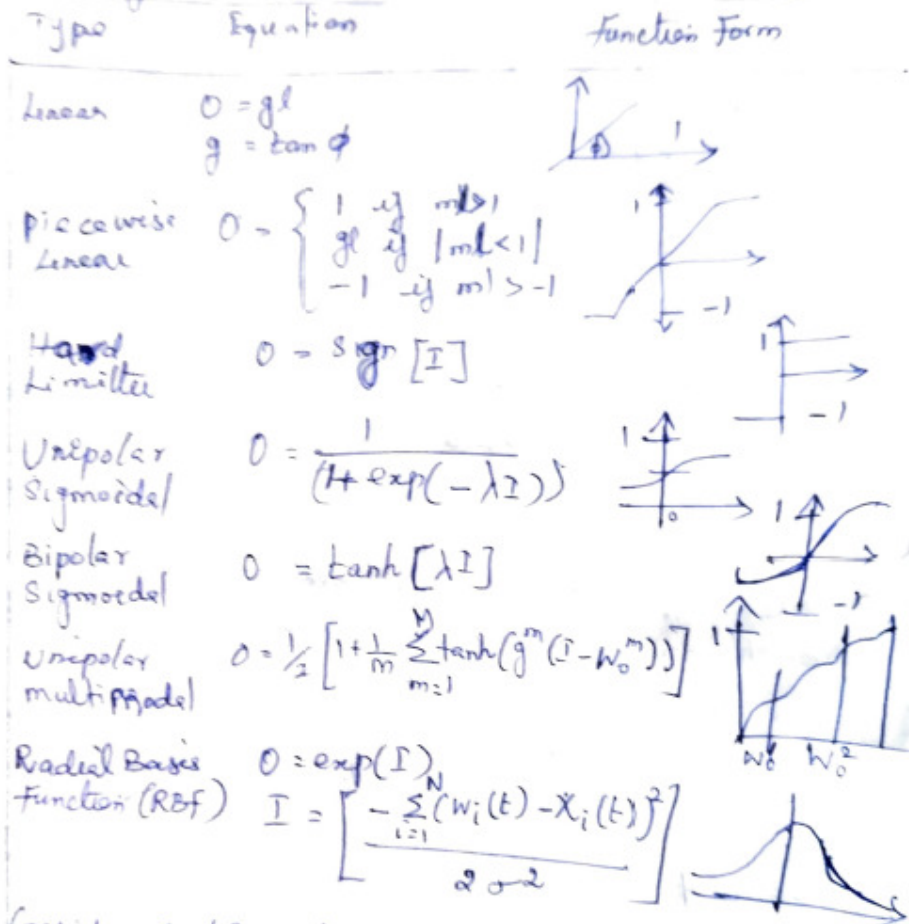 Type Equation Function Form
Linear O = gl
g = tan φ
1
Piecewise Linear O = { 1 if ml>1
gl if |ml<1|
-1 if ml > -1
1
-1
Hard Limitter O = Sign [I]
1
-1
Unipolar Sigmoidal O = 1 / (1+ exp(-λI))
1
0
Bipolar Sigmoidal O = tanh [λI]
1
-1
Unipolar multimodal O = 1/2 [1+ 1/m Σ m=1 tanh(g^m (I-W₀^m))]
1
W₀² 
Radial Basis Function (RBF) O = exp(I)
I = [ -Σ i=1 N (Wi(t) - Xi(t))² / 2σ² ]